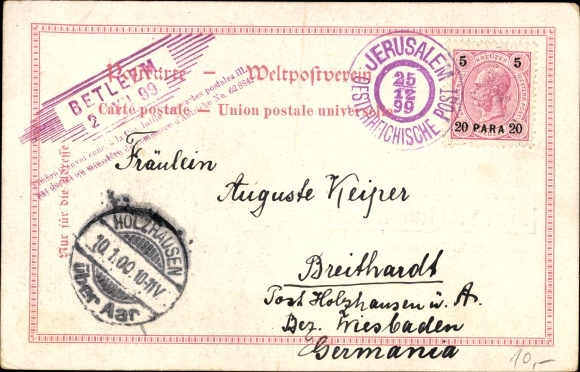 BETLEEM
JERUSALEM
25
12
99
OESTERREICHISCHE POST
5 5
20 PARA 20
Postkarte – Weltpostverein
Carte postale – Union postale universelle
Nur für die Adresse
Fräulein
Auguste Keiper
HOLZHAUSEN
10.1.00 10-11V.
über Aar
Breithardt
Post Holzhausen ü. A.
Bez. Wiesbaden
Germania
10,-